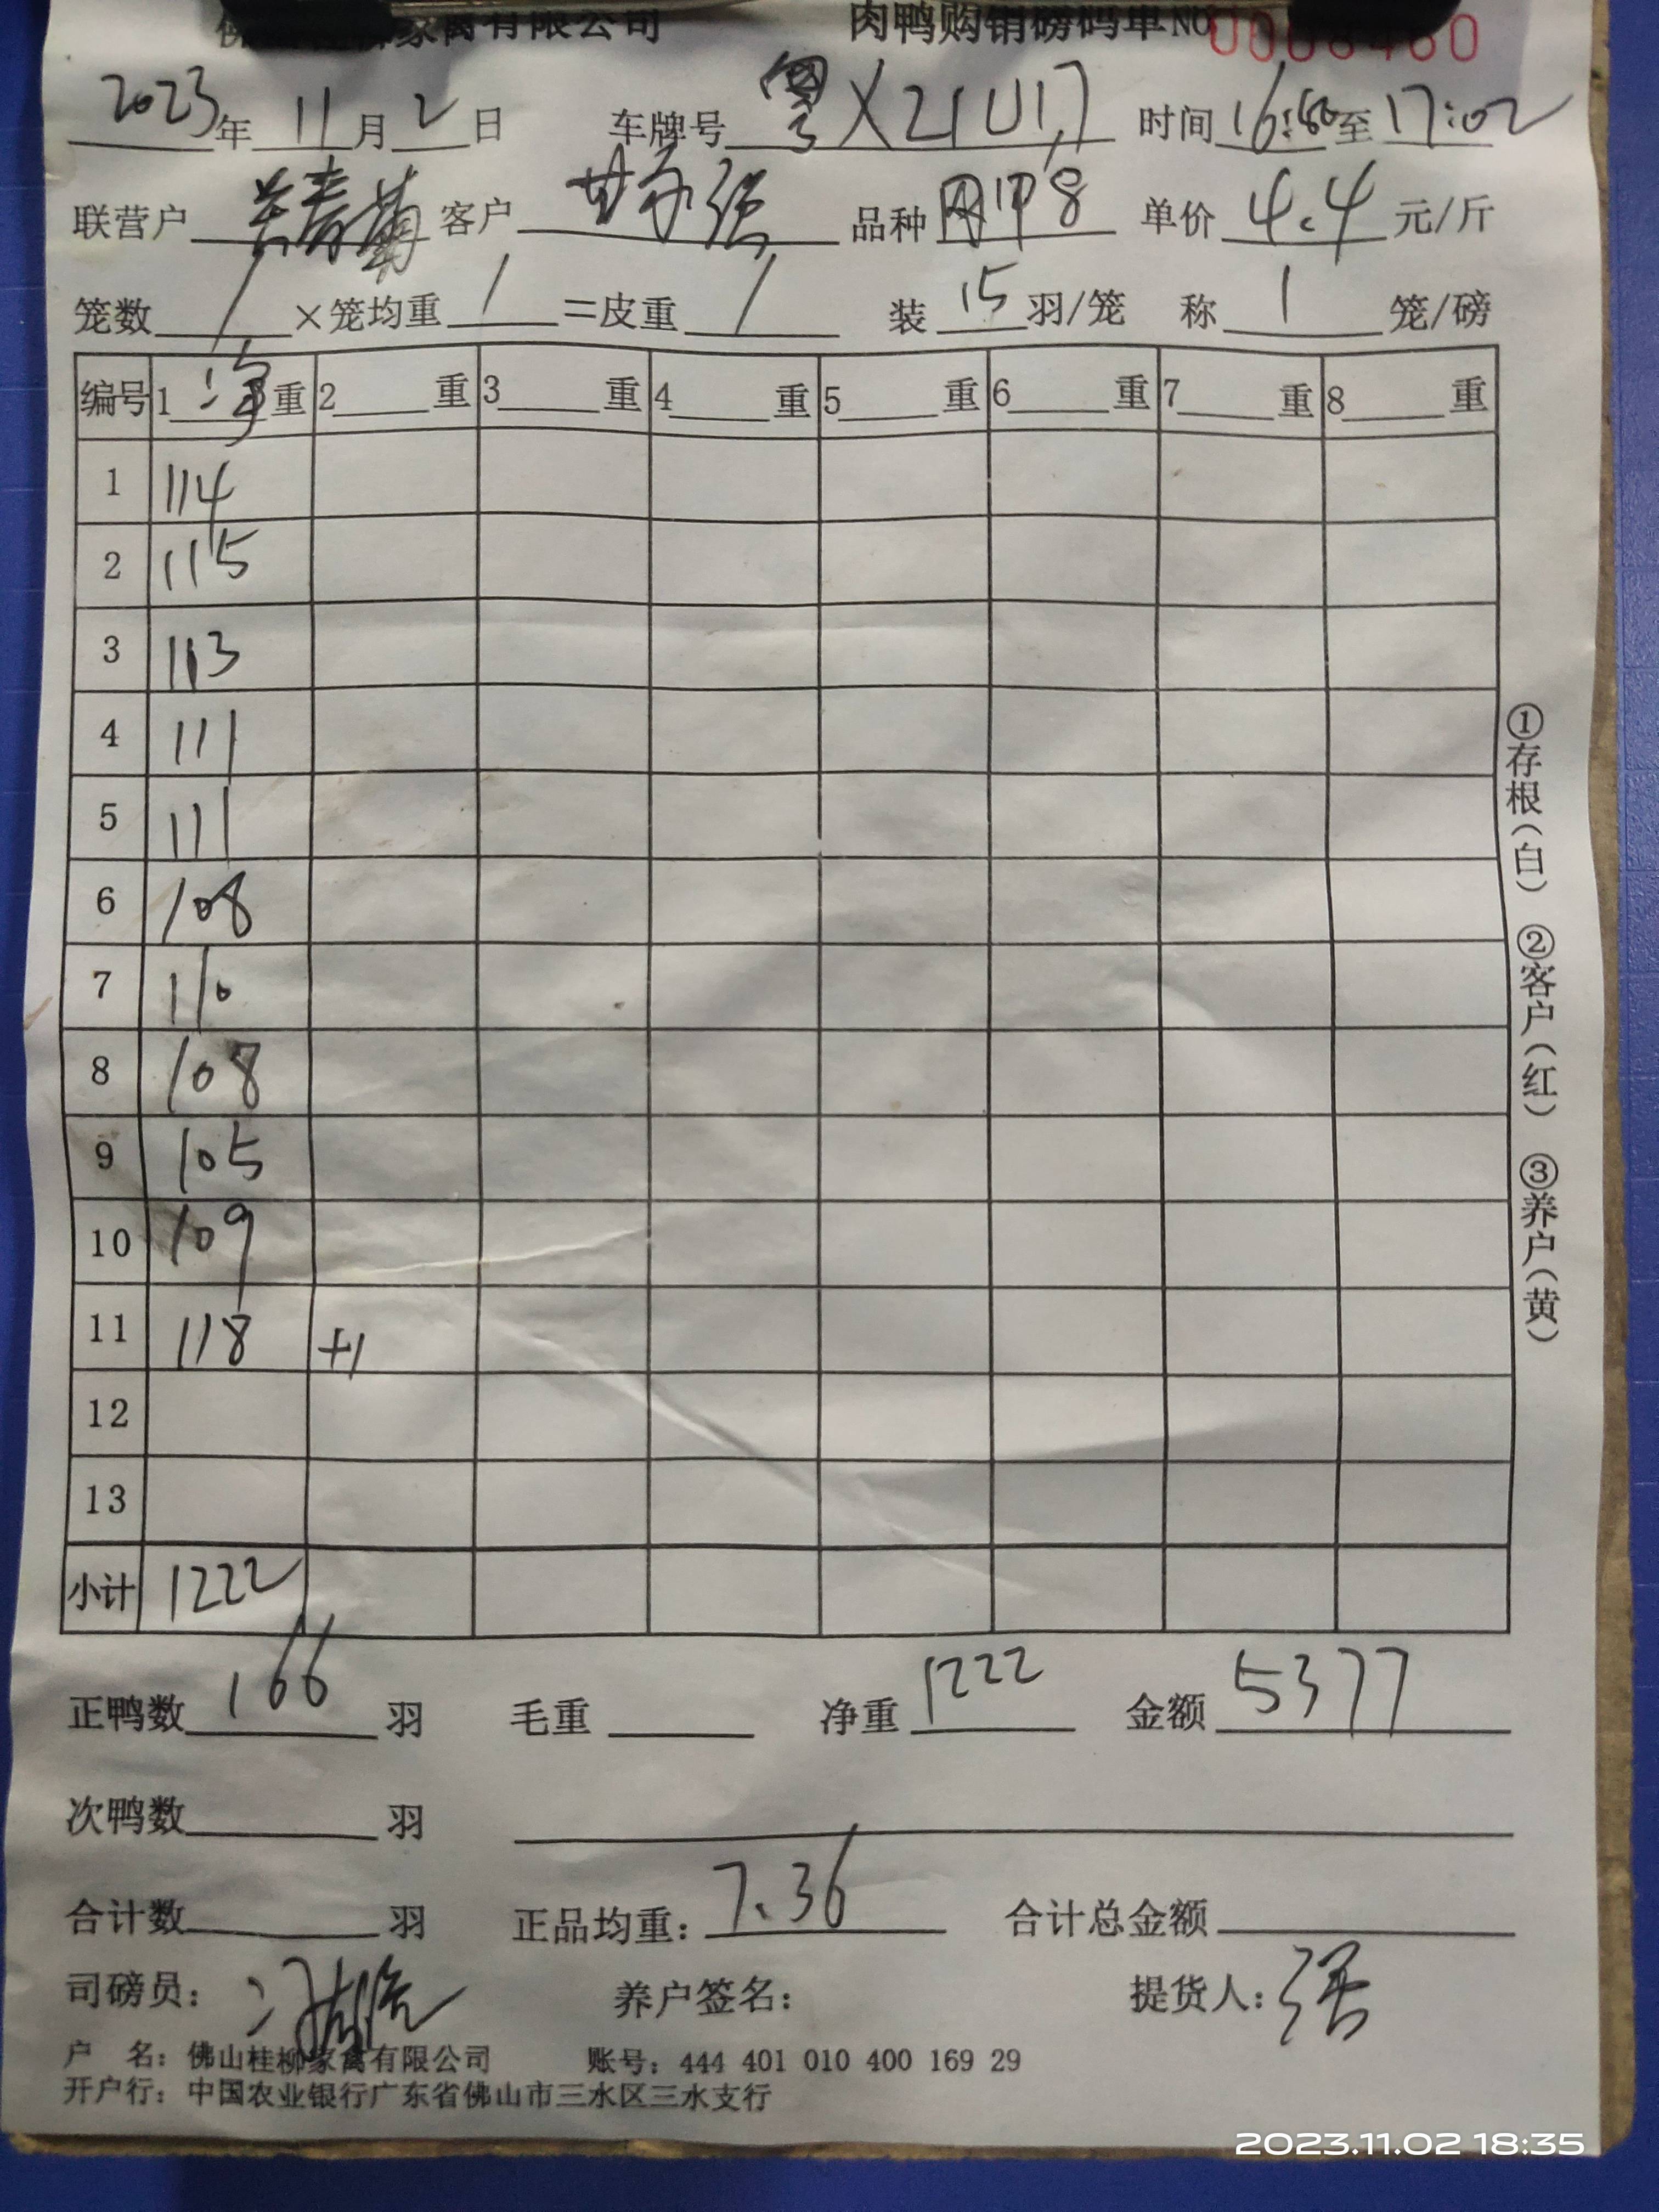 家禽有限公司 肉鸭购销磅码单NO 0008460
2023年11月2日 车牌号粤X21U17 时间16:50至17:02
联营户 客户 强 品种 8 单价4.4元/斤
笼数/×笼均重/=皮重/ 装15羽/笼 称1笼/磅
编号 1净重 2重 3重 4重 5重 6重 7重 8重
1 114
2 115
3 113
4 111
5 111
6 108
7 110
8 108
9 105
10 109
11 118 +1
12
13
小计 1222
正鸭数166羽 毛重 净重1222 金额5377
次鸭数 羽
合计数 羽 正品均重:7.36 合计总金额
司磅员: 养户签名: 提货人:强
户 名:佛山桂柳家禽有限公司 账号:444 401 010 400 169 29
开户行:中国农业银行广东省佛山市三水区三水支行
①存根(白) ②客户(红) ③养户(黄)
2023.11.02 18:35